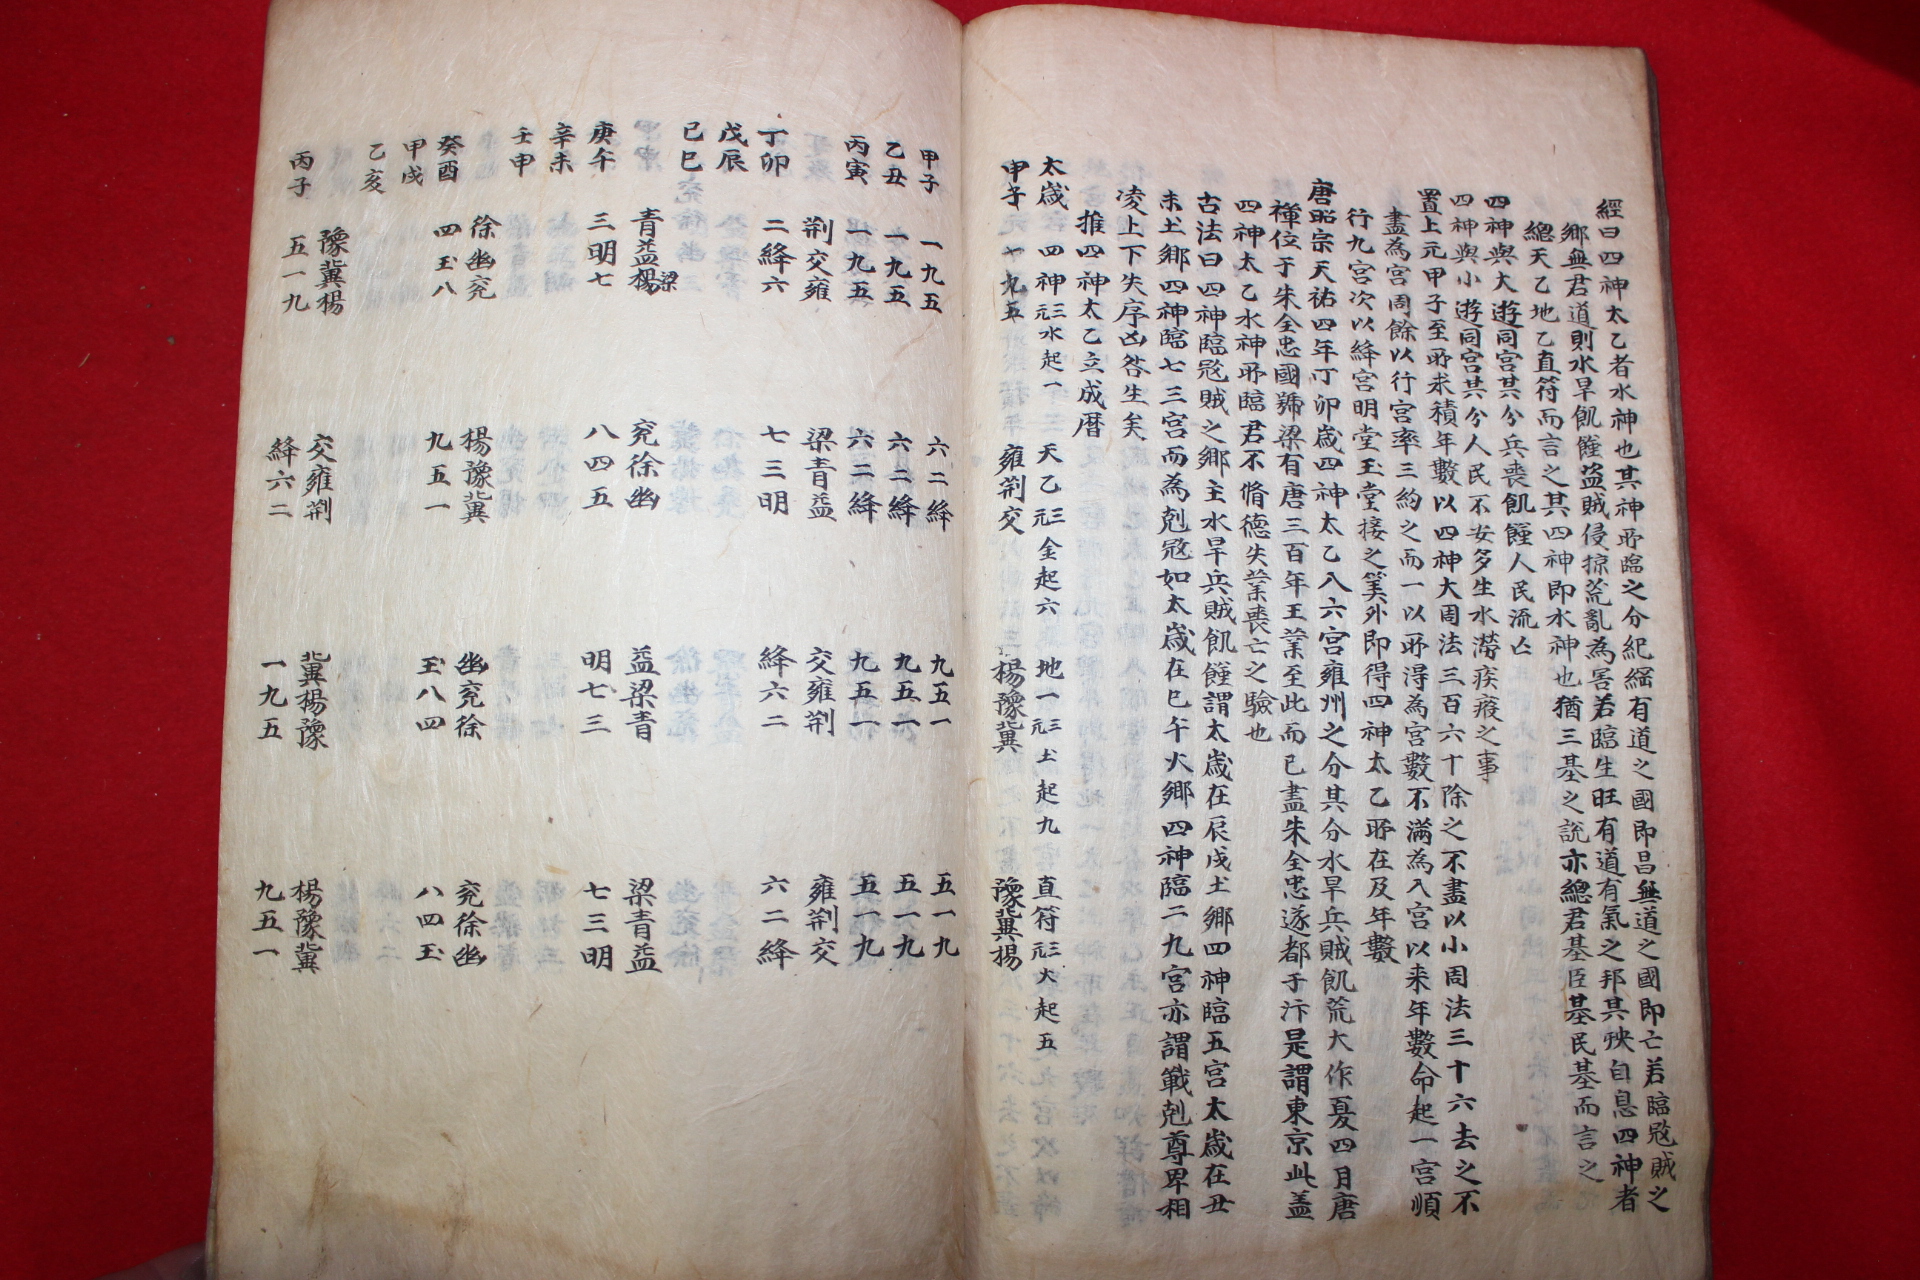 經曰四神太乙者水神也其神所臨之分紀綱有道之國即昌無道之國即亡若臨寇賊之
鄉無君道則水旱飢饉盜賊侵掠荒亂為害若臨生旺有道有氣之邦其殃自息四神者
總天乙地乙直符而言之其四神即水神也猶三基之說亦總君基臣基民基而言之
四神與大遊同宮其分兵喪飢饉人民流亡
四神與小遊同宮其分人民不安多生水澇疾疫之事
置上元甲子至所求積年數以四神大周法三百六十除之不盡以小周法三十六去之不
盡為宮周餘以行宮率三約之而一以所得為宮數不滿為入宮以來年數命起一宮順
行九宮次以絳宮明堂玉堂接之筭外即得四神太乙所在及年數
唐昭宗天祐四年丁卯歲四神太乙入六宮雍州之分其分水旱兵賊飢荒大作夏四月唐
禪位于朱全忠國號梁有唐三百年王業至此而已盡朱全忠遂都于汴是謂東京此蓋
四神太乙水神所臨君不脩德失業喪亡之驗也
古法曰四神臨寇賊之鄉主水旱兵賊飢饉謂太歲在辰戌土鄉四神臨五宮太歲在丑
未土鄉四神臨七三宮而為剋寇如太歲在巳午火鄉四神臨二九宮亦謂戰剋尊卑相
凌上下失序凶咎生矣
推四神太乙立成曆
太歲 四神三元水起一 天乙三元金起六 地一三元土起九 直符三元火起五
甲子 一九五 雍荆交 楊豫冀 豫冀楊
甲子 一九五 六二絳 九五一 五一九
乙丑 一九五 六二絳 九五一 五一九
丙寅 一九五 六二絳 九五一 五一九
荆交雍 梁青益 交雍荆 雍荆交
丁卯 二絳六 七三明 絳六二 六二絳
戊辰
己巳
青益楊梁 兖徐幽 益梁青 梁青益
庚午 三明七 八四五 明七三 七三明
辛未
壬申
徐幽兖 楊豫冀 幽兖徐 兖徐幽
癸酉 四玉八 九五一 玉八四 八四玉
甲戌
乙亥
豫冀楊 交雍荆 冀楊豫 楊豫冀
丙子 五一九 絳六二 一九五 九五一